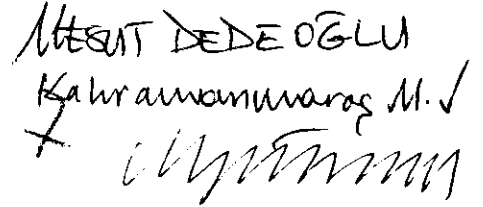 MESUT DEDEOĞLU
Kahramanmaraş M.V